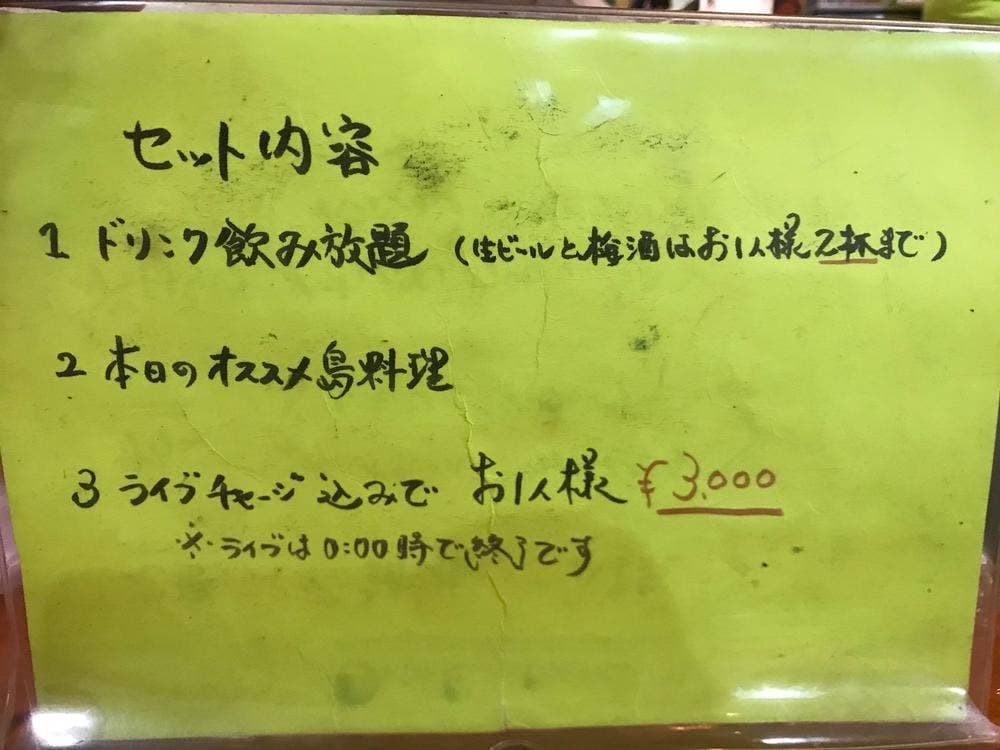 セット内容
1 ドリンク飲み放題 (生ビールと梅酒はお1人様2杯まで)
2 本日のオススメ島料理
3 ライブチャージ込みで お1人様 ¥3.000
※ライブは0:00時で終了です